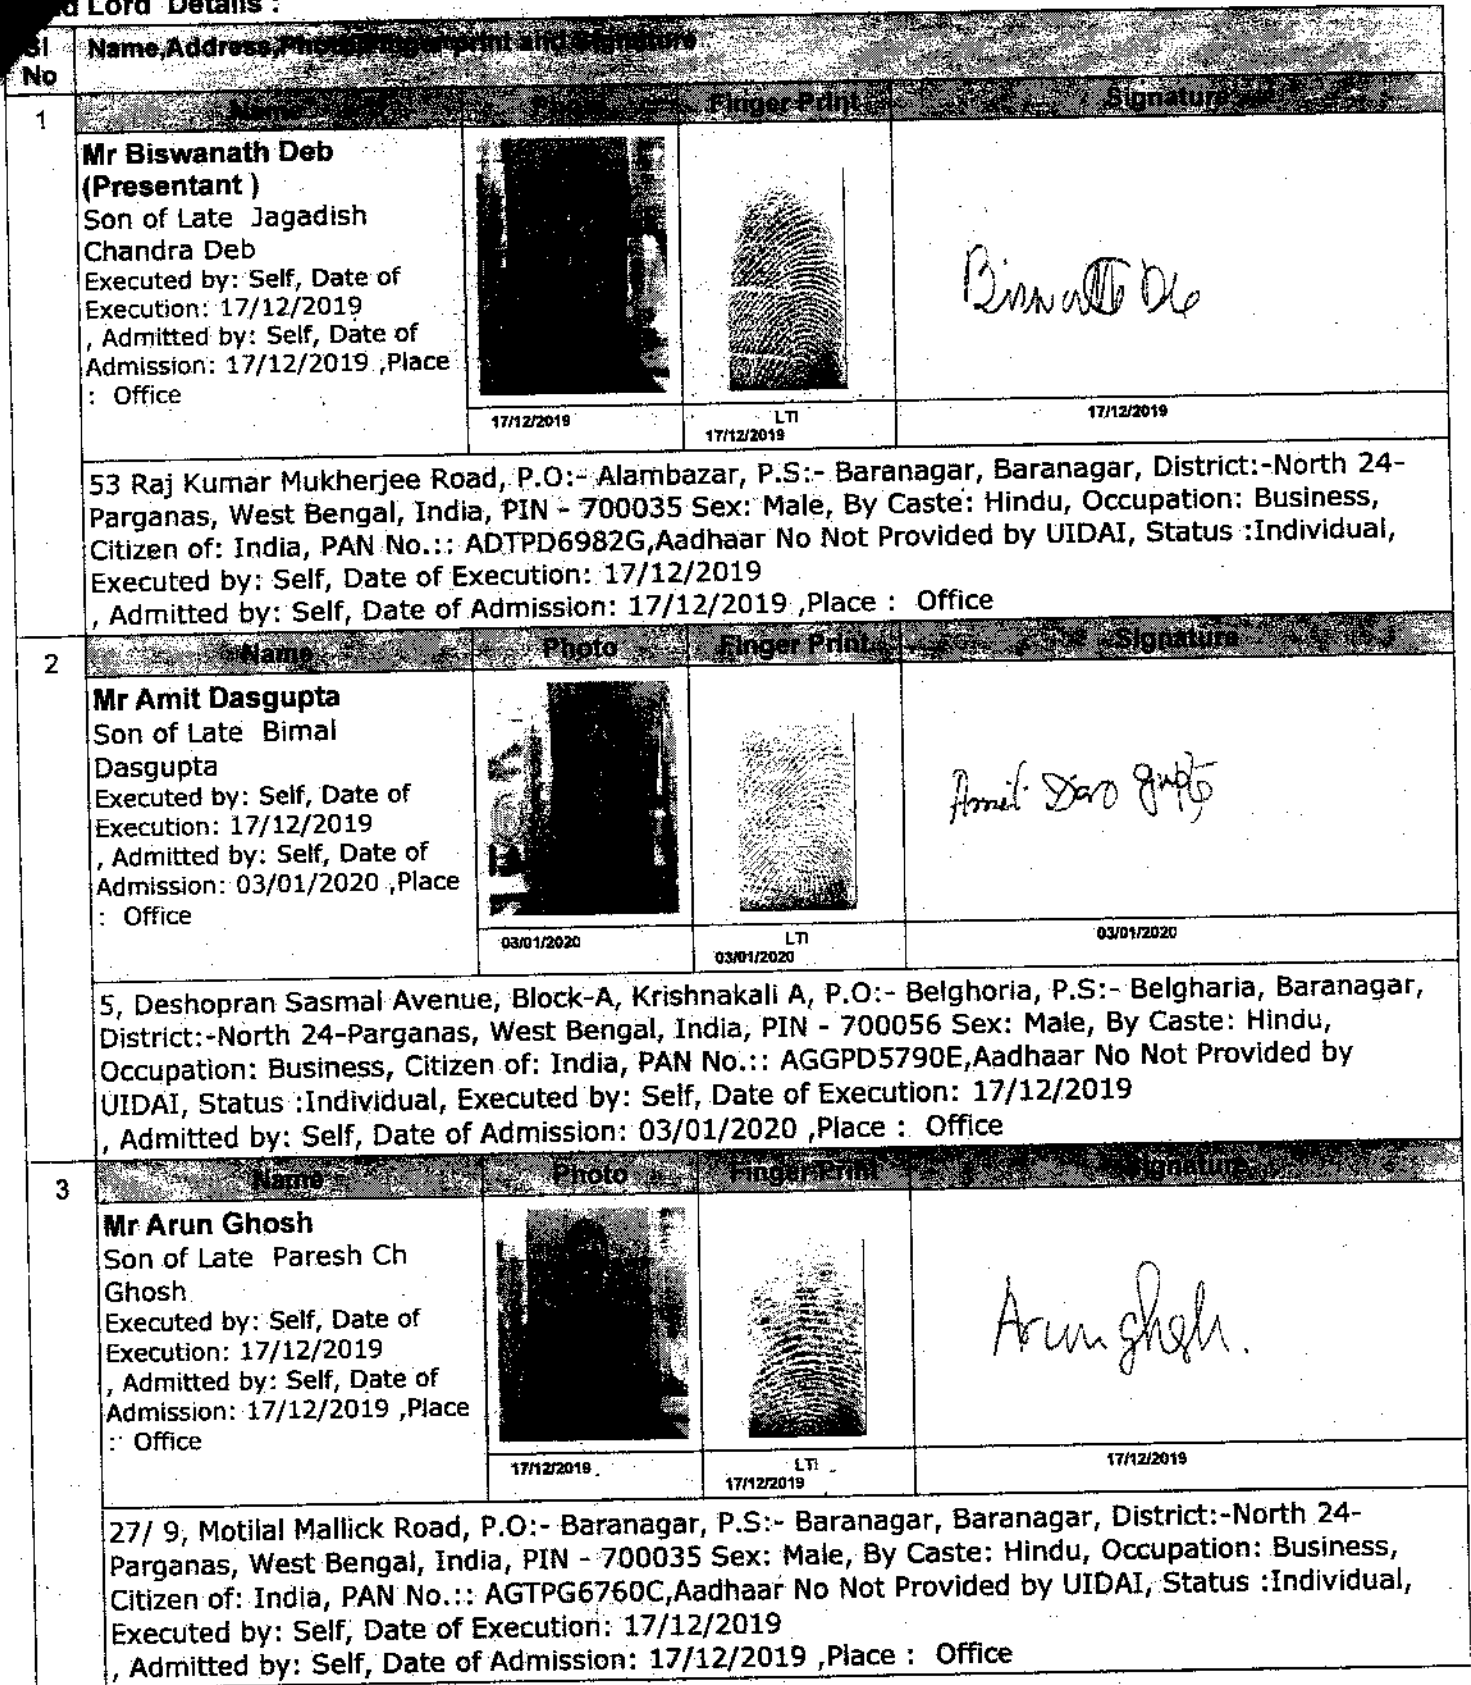 d Lord Details :
Sl No
Name,Address,Photo,Finger print and Signature
1
Name Photo Finger Print Signature
Mr Biswanath Deb
(Presentant )
Son of Late Jagadish
Chandra Deb
Executed by: Self, Date of
Execution: 17/12/2019
, Admitted by: Self, Date of
Admission: 17/12/2019 ,Place
: Office
17/12/2019
LTI
17/12/2019
17/12/2019
53 Raj Kumar Mukherjee Road, P.O:- Alambazar, P.S:- Baranagar, Baranagar, District:-North 24-
Parganas, West Bengal, India, PIN - 700035 Sex: Male, By Caste: Hindu, Occupation: Business,
Citizen of: India, PAN No.:: ADTPD6982G,Aadhaar No Not Provided by UIDAI, Status :Individual,
Executed by: Self, Date of Execution: 17/12/2019
, Admitted by: Self, Date of Admission: 17/12/2019 ,Place : Office
2
Name Photo Finger Print Signature
Mr Amit Dasgupta
Son of Late Bimal
Dasgupta
Executed by: Self, Date of
Execution: 17/12/2019
, Admitted by: Self, Date of
Admission: 03/01/2020 ,Place
: Office
Amit Das Gupta
03/01/2020
LTI
03/01/2020
03/01/2020
5, Deshopran Sasmal Avenue, Block-A, Krishnakali A, P.O:- Belghoria, P.S:- Belgharia, Baranagar,
District:-North 24-Parganas, West Bengal, India, PIN - 700056 Sex: Male, By Caste: Hindu,
Occupation: Business, Citizen of: India, PAN No.:: AGGPD5790E,Aadhaar No Not Provided by
UIDAI, Status :Individual, Executed by: Self, Date of Execution: 17/12/2019
, Admitted by: Self, Date of Admission: 03/01/2020 ,Place : Office
3
Name Photo Finger Print Signature
Mr Arun Ghosh
Son of Late Paresh Ch
Ghosh
Executed by: Self, Date of
Execution: 17/12/2019
, Admitted by: Self, Date of
Admission: 17/12/2019 ,Place
: Office
Arun Ghosh.
17/12/2019
LTI
17/12/2019
17/12/2019
27/ 9, Motilal Mallick Road, P.O:- Baranagar, P.S:- Baranagar, Baranagar, District:-North 24-
Parganas, West Bengal, India, PIN - 700035 Sex: Male, By Caste: Hindu, Occupation: Business,
Citizen of: India, PAN No.:: AGTPG6760C,Aadhaar No Not Provided by UIDAI, Status :Individual,
Executed by: Self, Date of Execution: 17/12/2019
, Admitted by: Self, Date of Admission: 17/12/2019 ,Place : Office